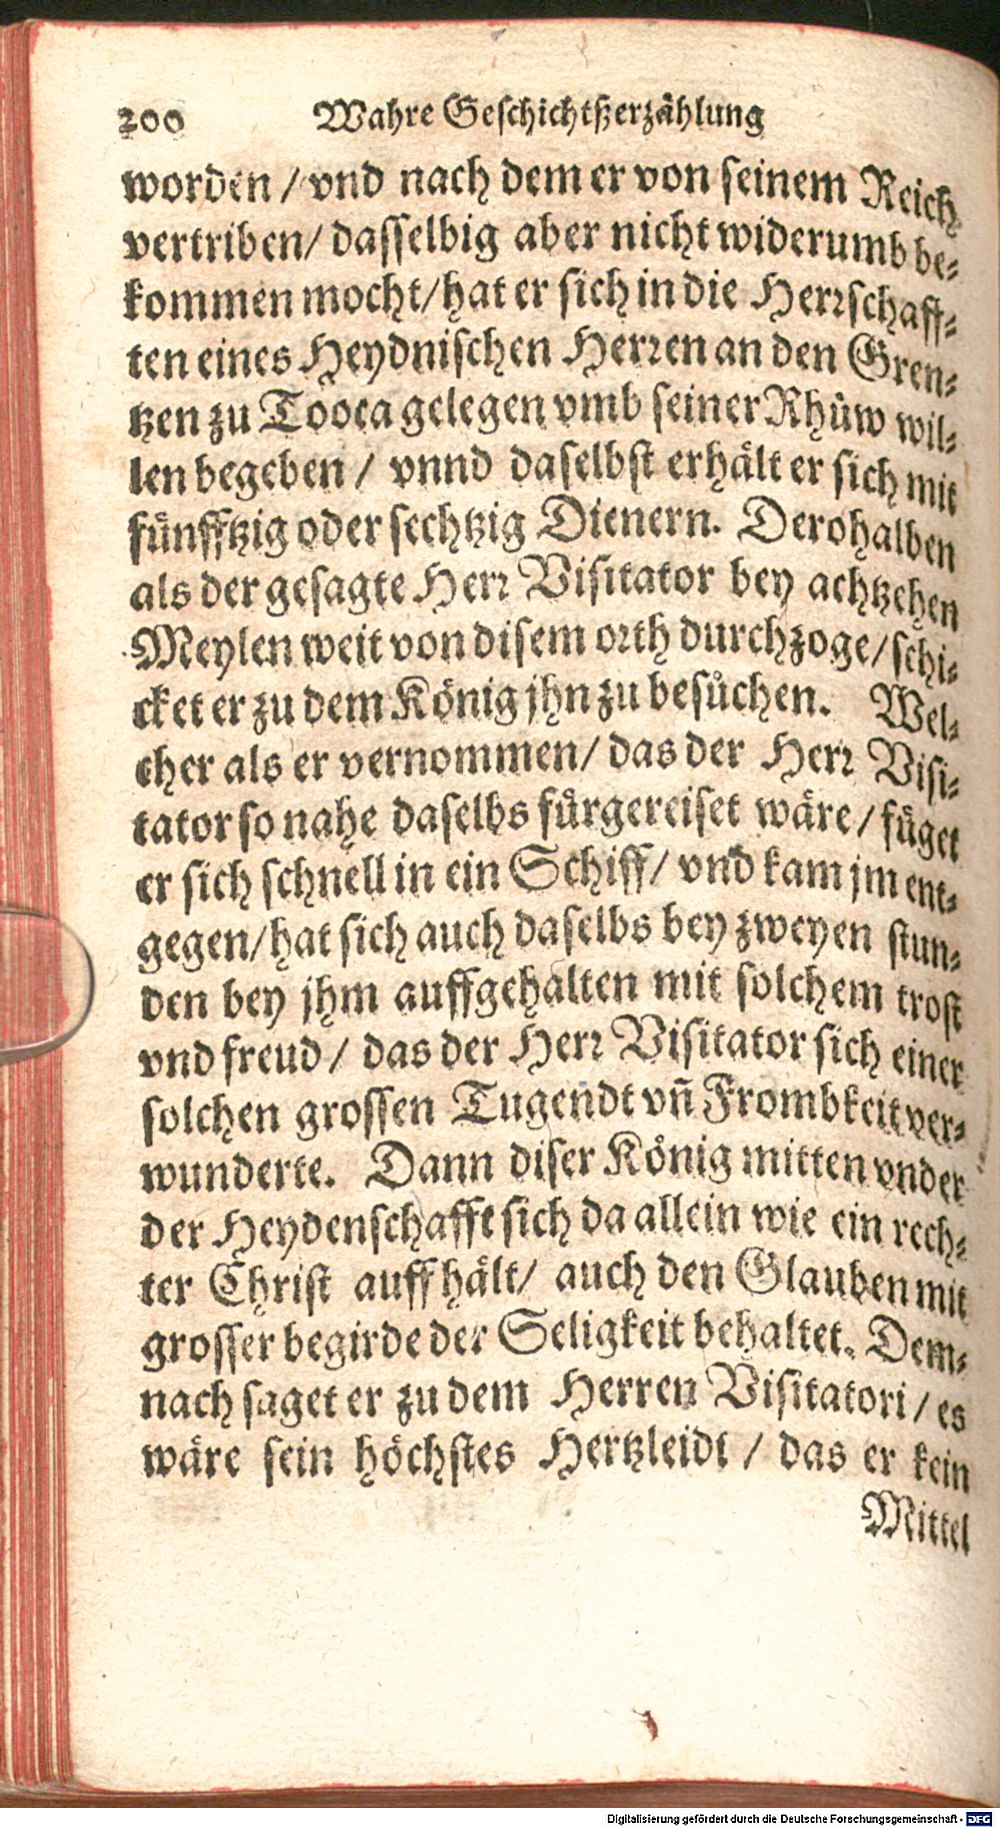 200 Wahre Geschichtßerzählung
worden / vnd nach dem er von seinem Reich
vertriben / dasselbig aber nicht widerumb be-
kommen mocht / hat er sich in die Herrschaff-
ten eines Heydnischen Herren an den Gren-
tzen zu Tooca gelegen vmb seiner Rhůw wil-
len begeben / vnnd daselbst erhält er sich mit
fünfftzig oder sechtzig Dienern. Derohalben
als der gesagte Herr Visitator bey achtzehen
Meylen weit von disem orth durchzoge / schi-
cket er zu dem König jhn zu besůchen. Wel-
cher als er vernommen / das der Herr Visi-
tator so nahe daselbs fürgereiset wäre / füget
er sich schnell in ein Schiff / vnd kam jm ent-
gegen / hat sich auch daselbs bey zweyen stun-
den bey jhm auffgehalten mit solchem trost
vnd freud / das der Herr Visitator sich einer
solchen grossen Tugendt vñ Frombkeit ver-
wunderte. Dann diser König mitten vnder
der Heydenschafft sich da allein wie ein rech-
ter Christ auffhält / auch den Glauben mit
grosser begirde der Seligkeit behaltet. Dem-
nach saget er zu dem Herren Visitatori / es
wäre sein höchstes Hertzleidt / das er kein
Mittel
Digitalisierung gefördert durch die Deutsche Forschungsgemeinschaft - DFG